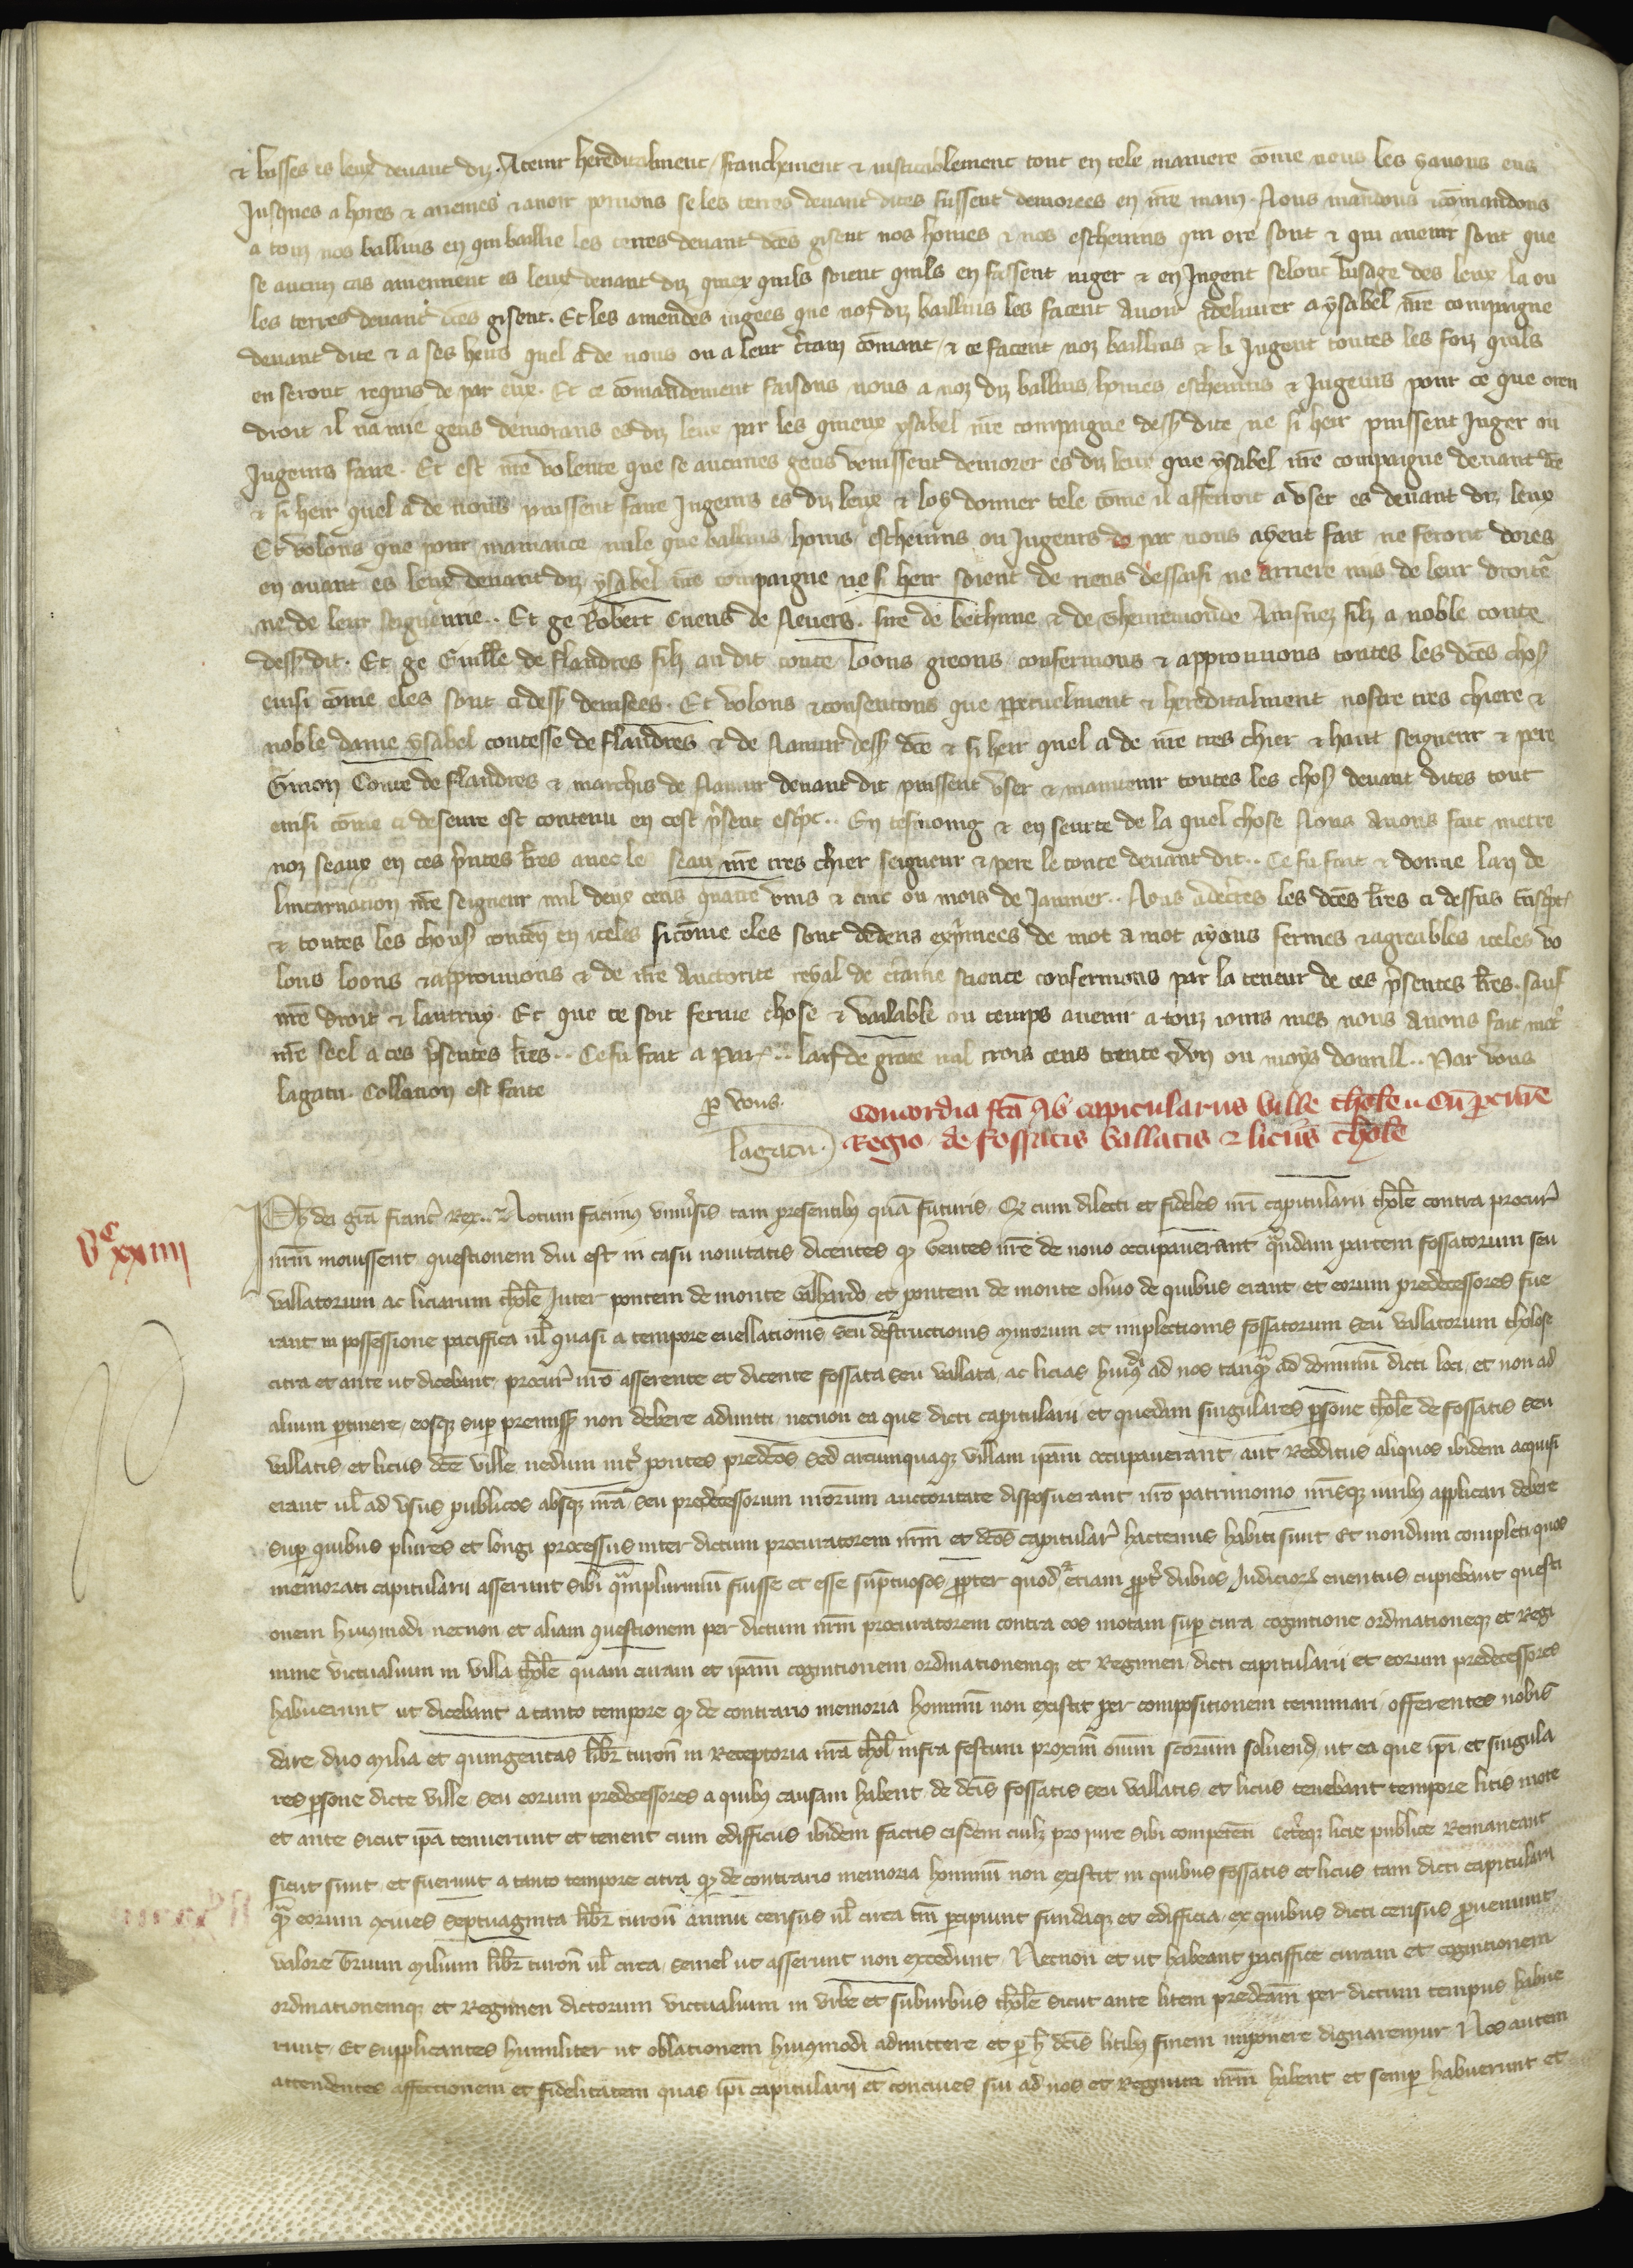 & busses es leux devant diz. A tenir hereditalment, franchement & iusticablement tout en tele maniere cõme nous les y avons eus
Jusques a hores & aviemes & avoir porrions se les terres devant dites fussent demorees en nr̃e main. Nous mandons & cõmandons
a touz nos baillius en qui baillie les terres devant dc̃es gisent nos homes & nos eschevins qui ore sont & qui avenir sont que
se aucun cas aviennent es leux devant diz quiex quils soient quils en fassent iuger & en Jugent selonc lusage des leux la ou
les terres devant dc̃es gisent. Et les amendes iugees que noz diz baillius les facent avoir & delivrer a ysabel nr̃e compaigne
devant dite & a ses heirs quel a de nous ou a leur c̃tain cõmant, & ce facent noz baillius & li Jugent toutes les foiz quils
en seront requis de par eux. Et ce cõmandement faisons nous a noz diz baillius homes eschevins & Jugeurs pour ce que oren
droit il na mie gens demorans es diz leux par les quieux ysabel nr̃e compaigne dess9 dite ne si heir puissent Juger ou
Jugeurs faire. Et est nr̃e volente que se aucunes gens venissent demorer es diz leux que ysabel nr̃e compaigne devant dc̃e
& si heir quel a de nous puissent faire Jugeurs es diz leux & loy donner tele cõme il afferroit a user es devant diz leux
Et volons que pour maniance nule que baillius, homs, eschevins ou Jugeurs de par nous ayent fait ne feront dores
en avant es leux devant diz ysabel nr̃e compaigne ne si heir soient de riens dessaisi ne arriere mis de leur droitẽ
ne de leur seigneurie.. Et ge Robert Cuens de Nevers. sire de bethune & de thenremonde Ainsnez filz a noble conte
dess9 dit. Et ge Guill̃e de flandres filz au dit conte, Loons greons, confermons & approuvons toutes les dc̃es chos9
einsi cõme eles sont ci dess9 devisees. Et volons & consentons que ꝑpetuelment & hereditalment nostre tres chiere &
noble dame ysabel contesse de flandres & de Namur dess9 dc̃e & si heir quel a de nr̃e tres chier & haut seigneur & pere
Guion Conte de flandres & marchis de Namur devant dit puissent user & maintenir toutes les chos9 devant dites tout
einsi cõme ci deseure est contenu en cest p̃sent esc̃pt.. En tesmoing & en seurte de la quel chose Nous avons fait metre
noz seaux en ces p̃ntes lr̃es avec le seau nr̃e tres chier seigneur & pere le conte devant dit.. Ce fu fait & donne lan de
lincarnation nr̃e seigneur mil deux cens quatre vins & cinc ou mois de Janvier.. Nous adec̃tes les dc̃es lr̃es ci dessus t̃nsc̃ptes
& toutes les chous9 conten9 en iceles sicõme eles sont dedens exp̃mees de mot a mot ayans fermes & agreables iceles vo
lons loons & approuvons & de nr̃e auctorite reyal de c̃taine science confermons par la teneur de ces p̃sentes lr̃es. sauf
nr̃e droit & lautruy. Et que ce soit ferme chose & vailable ou temps avenir a touz iours mes nous avons fait met̃
nr̃e seel a ces p̃sentes lr̃es.. Ce fu fait a Par9.. lan de grace mil trois cens trente & un ou moys davrill.. Par vous
lagatu. Collation est faite
ꝑ vous.
lagatu.
Concordia fc̃a cũ capitulariis Ville thol̃e u cũ ꝓcur̃e
Regio de fossatis vallatis & liciis thol̃e
Vᶜ xxiiii
Ph9 dei gr̃a franc̃ Rex.. Notum facim9 uniṽsis tam presentib9 quã futuris. Qꝫ cum dilecti et fideles nr̃i capitularii thol̃e contra procur̃
nr̃m movissent questionem diu est in casu novitatis dicentes qꝫ Gentes nr̃e de novo occupaverant quandam partem fossatorum seu
vallatorum ac liciarum thol̃e Inter pontem de monte Galhardo et pontem de monte olivo de quibus erant et eorum predecessores fue
rant in possessione paciffica ul̃ quasi a tempore evellationis seu destructionis murorum et impletionis fossatorum seu vallatorum tholose
citra et ante ut dicebant, procur̃ nr̃o asserente et dicente fossata seu vallata, ac licias hui9̃di ad nos tanq̃ ad dominũ dicti loci, et non ad
alium ꝑtinere, eosqꝫ suꝑ premiss9 non debere admitti, necnon ea que dicti capitularii et quedam singulares ꝑsone thol̃e de fossatis seu
vallatis, et liciis dc̃e ville nedum int̃ pontes predc̃os sed circumquaqꝫ villam ip̃am occupaverant, aut redditus aliquos ibidem acquisi
erant ul̃ ad usus publicos absqꝫ nr̃a, seu predecessorum nr̃orum auctoritate disposuerant nr̃o patrimonio nr̃isqꝫ iurib9 applicari debere
suꝑ quibus plures et longi processus inter dictum procuratorem nr̃m et dc̃os capitular̃ hactenus habiti sunt Et nondum completi quos
memorati capitularii asserunt sibi q̃mplurimũ fuisse et esse sũptuosos, ꝓpter quod etiam ꝓpt̃ dubios Judicioꝝ eventus cupiebant questi
onem hui9modi necnon et aliam questionem per dictum nr̃m procuratorem contra eos motam suꝑ cura cognitione ordinationeqꝫ et Regi
mine victualium in villa thol̃e quam curam et ip̃am cognitionem ordinationemqꝫ et Regimen, dicti capitularii et eorum predecessores
habuerunt ut dicebant a tanto tempore qꝫ de contrario memoria hominũ non existit per compositionem terminari, offerentes nobis
dare duo milia et quingentas libr̃ turon̄ in Receptoria nr̃a thol̃ infra festum proxim̃ oĩum sc̃orum solvend9 ut ea que ip̃i et singula
res ꝑsone dicte ville seu eorum predecessores a quib9 causam habent, de dc̃is fossatis seu vallatis et liciis tenebant tempore litis mote
et ante sicut ip̃a tenuerunt et tenent cum edifficiis ibidem factis eisdem cuilꝫ pro iure sibi competẽti Cet̃eqꝫ licie publice Remaneant
sicut sunt, et fuerunt a tanto tempore citra qꝫ de contrario memoria hominũ non existit in quibus fossatis et liciis tam dicti capitularii
q̃ eorum ↄcives septuaginta libr̃ turon̄ annui census ul̃ circa tm̃ ꝑcipiunt fundaqꝫ et edifficia, ex quibus dicti census ꝓveniunt
valorẽ trium milium libr̃ turon̄ ul̃ circa, semel ut asserunt non excedunt. Necnon et ut habeant paciffice curam et cognitionem
ordinationemqꝫ et Regimen dictorum victualium in urbe et suburbiis thol̃e sicut ante litem predc̃am per dictum tempus habue
runt. Et supplicantes humiliter ut oblationem hui9modi admittere et ꝑ h̃ dc̃is litib9 finem imponere dignaremur. Nos autem
attendentes affectionem et fidelitatem quas ip̃i capitularii et concives sui ad nos et Regnum nr̃m habent et semꝑ habuerunt et